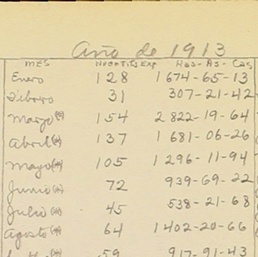 Año de 1913
MES Nº de Tits Exp Has-As-Cas
Enero 128 1674-65-13
Febrero 31 307-21-42
Marzo (*) 154 2822-19-64
Abril (*) 137 1681-06-26
Mayo (*) 105 1296-11-94
Junio (*) 72 939-69-22
Julio (*) 45 538-21-68
Agosto (*) 64 1402-20-66
59 917-91-43